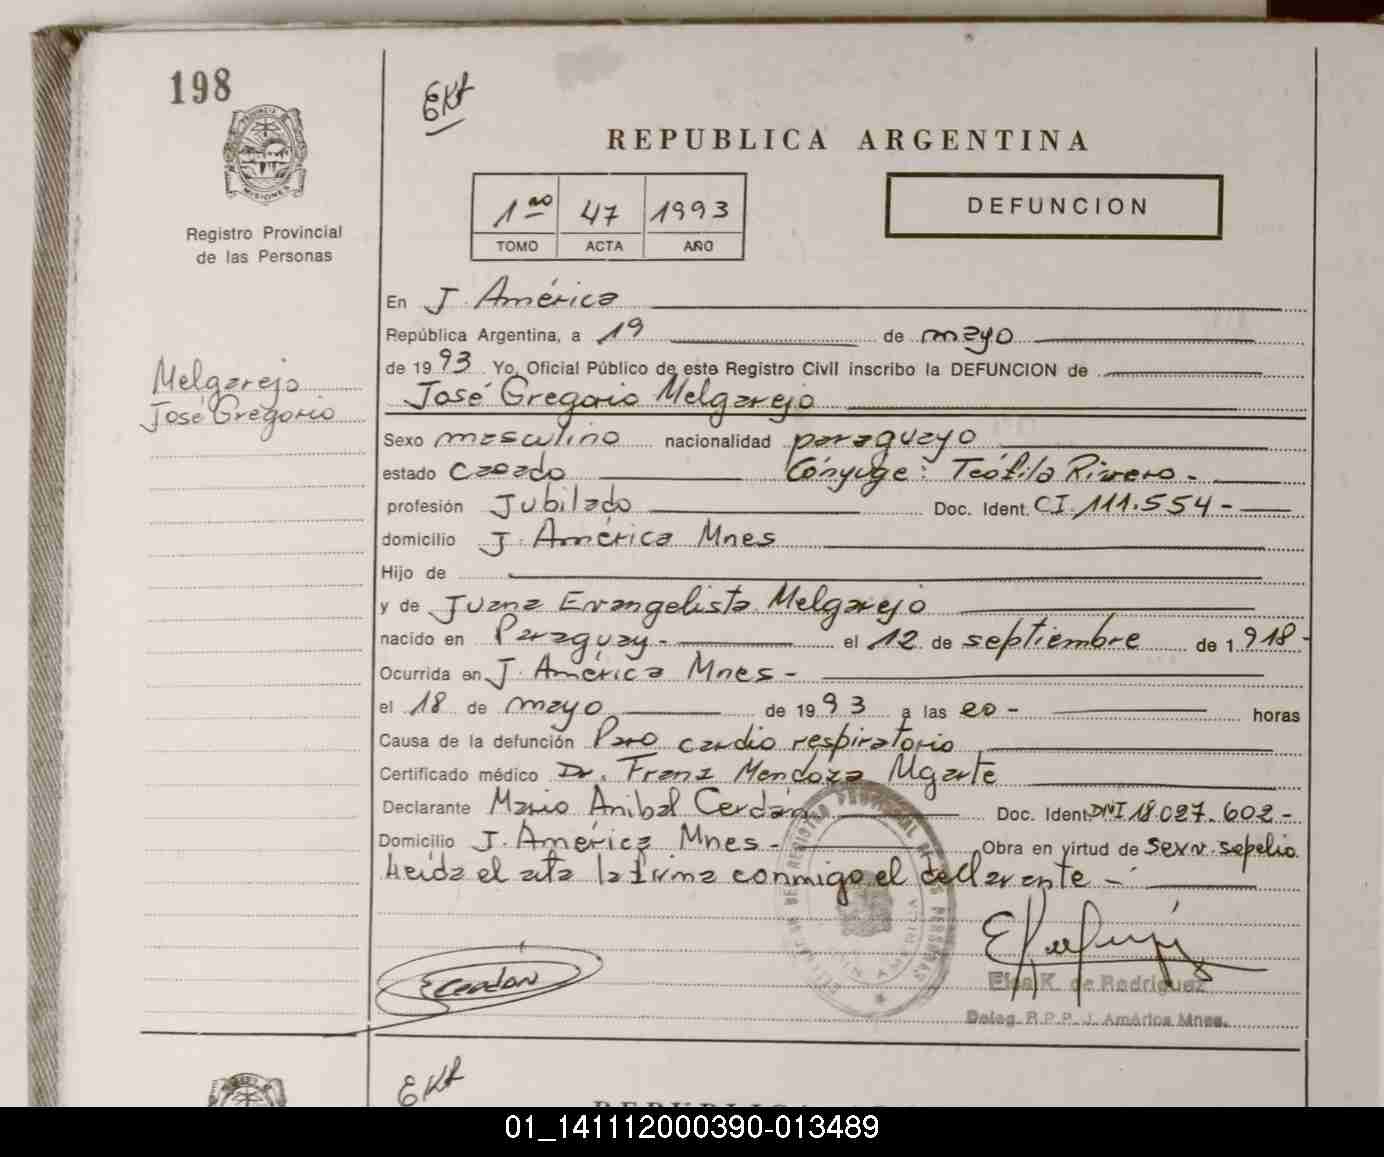 198
EKR
PROVINCIA DE
MISIONES
REPUBLICA ARGENTINA
1ro 47 1993
TOMO ACTA AÑO
DEFUNCION
Registro Provincial
de las Personas
En J. América
República Argentina, a 19 de mayo
de 1993 Yo, Oficial Público de este Registro Civil inscribo la DEFUNCION de
Melgarejo
José Gregorio
José Gregorio Melgarejo
Sexo masculino nacionalidad paraguayo
estado casado Cónyuge: Teófila Rivero -
profesión Jubilado Doc. Ident. CI. 111.554 -
domicilio J. América Mnes
Hijo de
y de Juana Evangelista Melgarejo
nacido en Paraguay - el 12 de septiembre de 1.918 -
Ocurrida en J. América Mnes -
el 18 de mayo de 1993 a las 20 - horas
Causa de la defunción Paro cardio respiratorio
Certificado médico Dr. Franz Mendoza Ugarte
Declarante Mario Anibal Cerdán Doc. Ident. DNI 18.027.602 -
Domicilio J. América Mnes - Obra en virtud de serv. sepelio.
Leída el acta la firma conmigo el declarante -
Cerdán
Elsa K. de Rodriguez
Deleg. R.P.P. J. América Mnes.
EKR
01_141112000390-013489